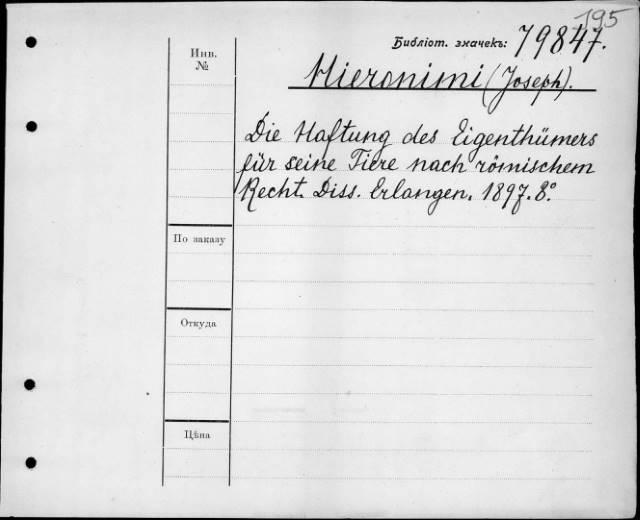 195
Библіот. значекъ: 79847.
Инв.
№
Hieronimi (Joseph).
Die Haftung des Eigenthümers
für seine Tiere nach römischem
Recht. Diss. Erlangen. 1897. 8°.
По заказу
Откуда
Цѣна